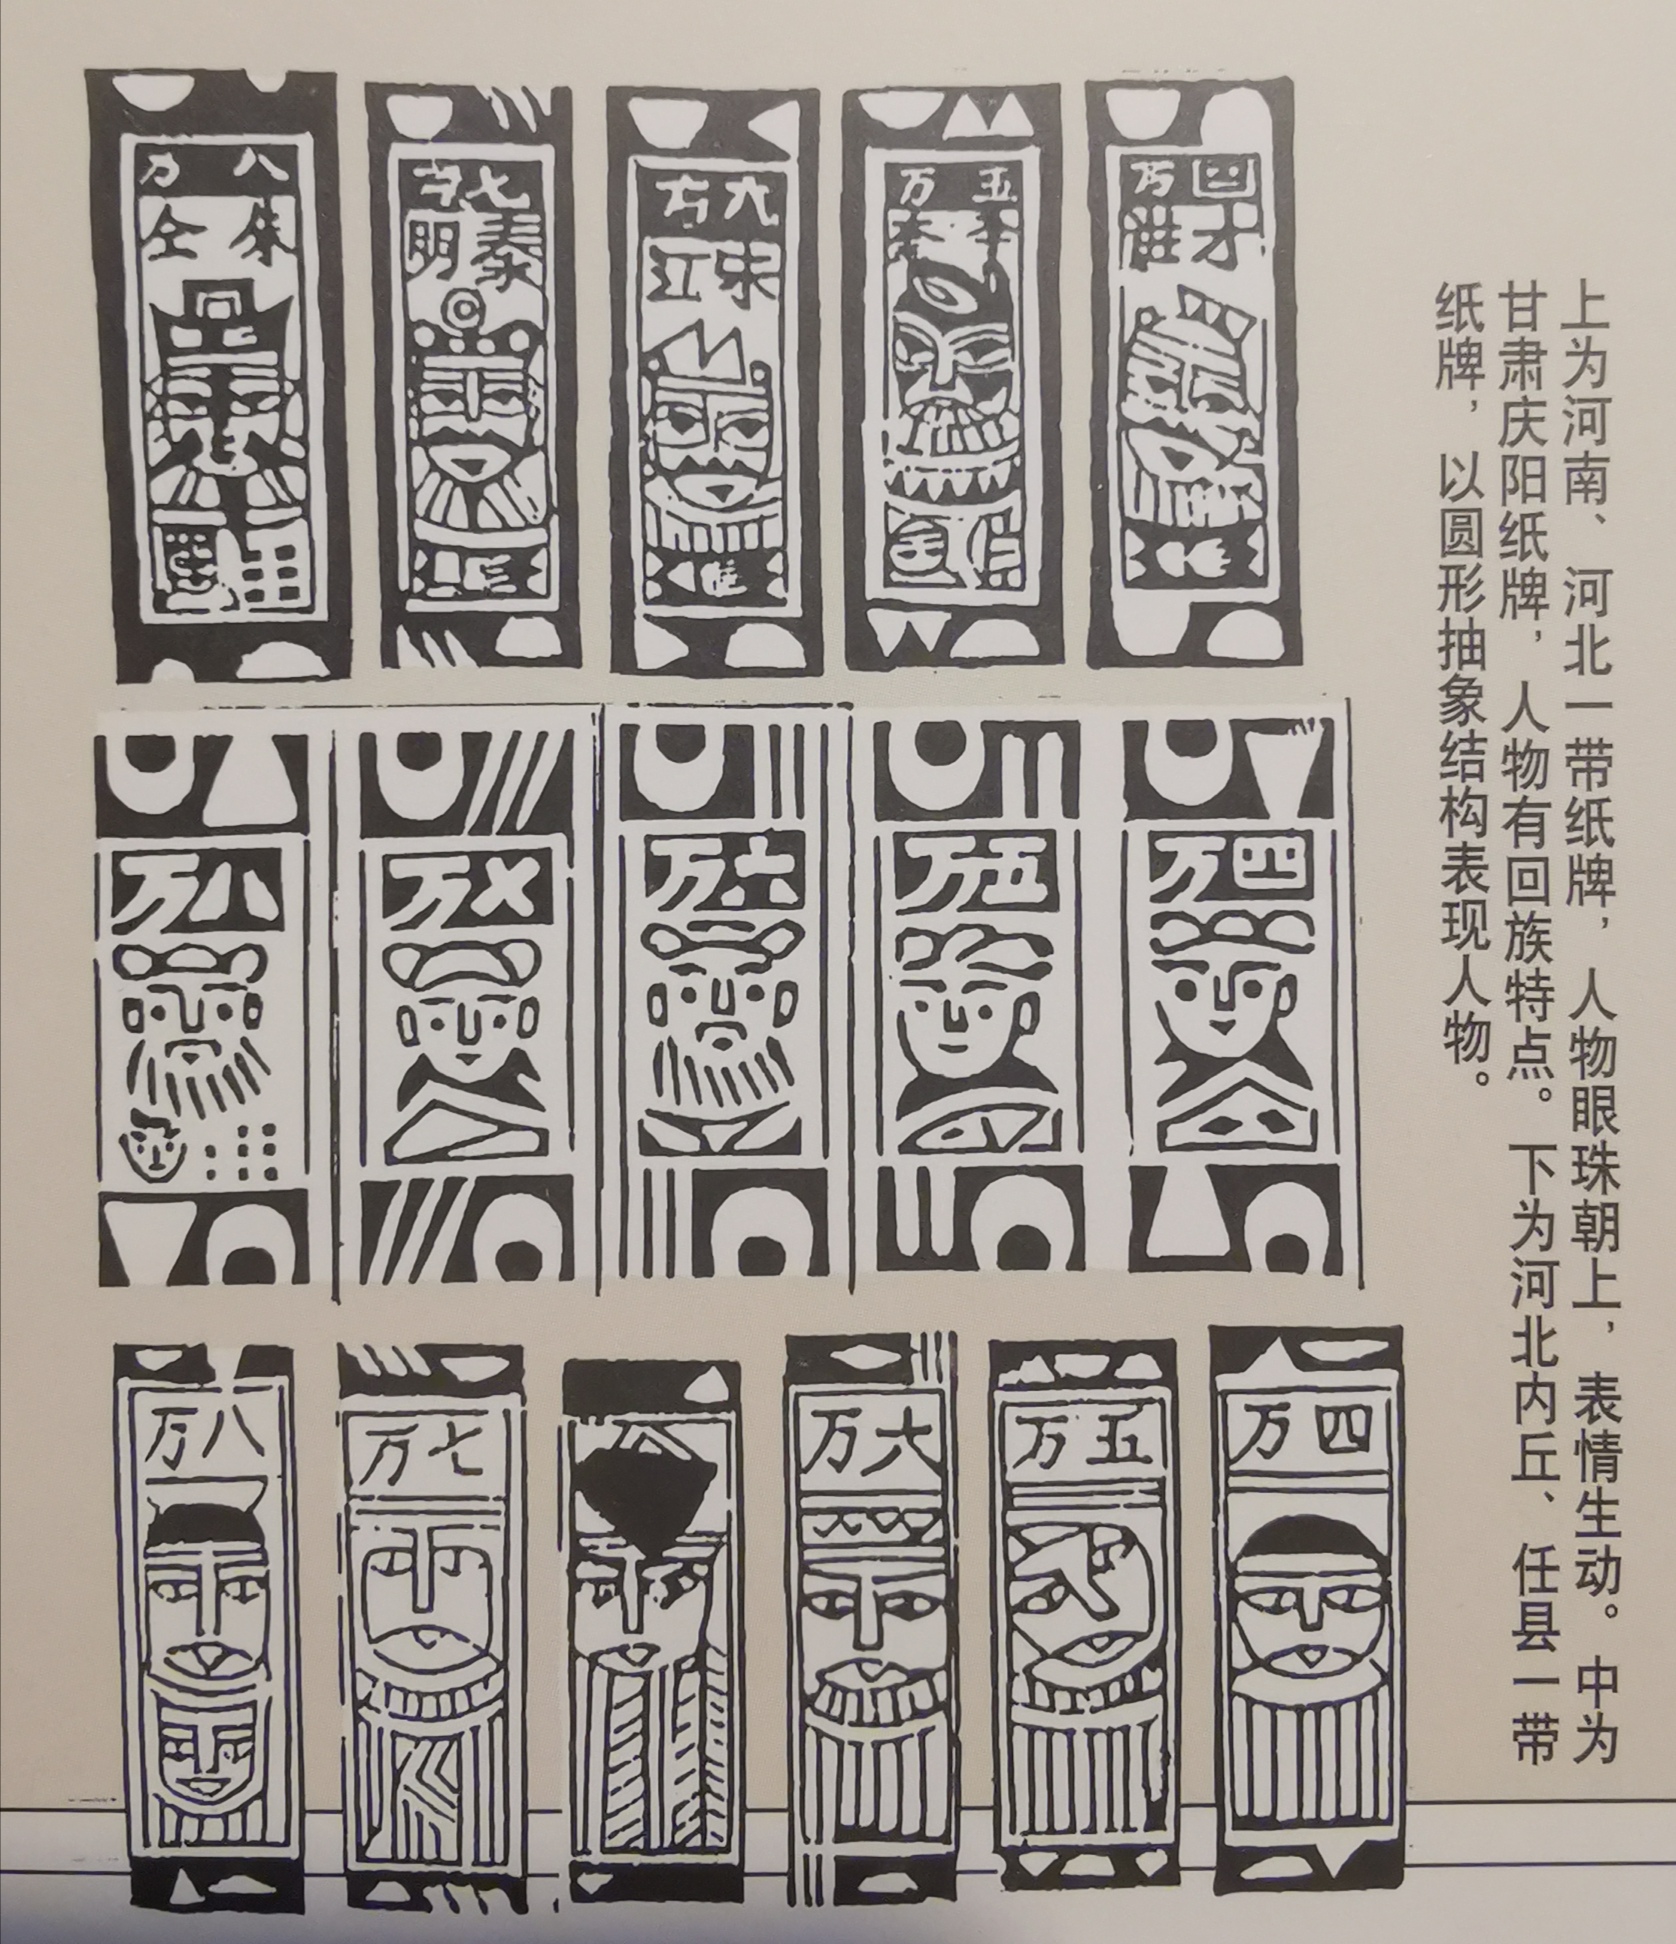 上为河南、河北一带纸牌，人物眼珠朝上，表情生动。中为
甘肃庆阳纸牌，人物有回族特点。下为河北内丘、任县一带
纸牌，以圆形抽象结构表现人物。
四万
五万
六万
宋江
七万
秦明
八万
朱仝
四万
五万
六万
万
八万
四万
五万
六万
七万
八万